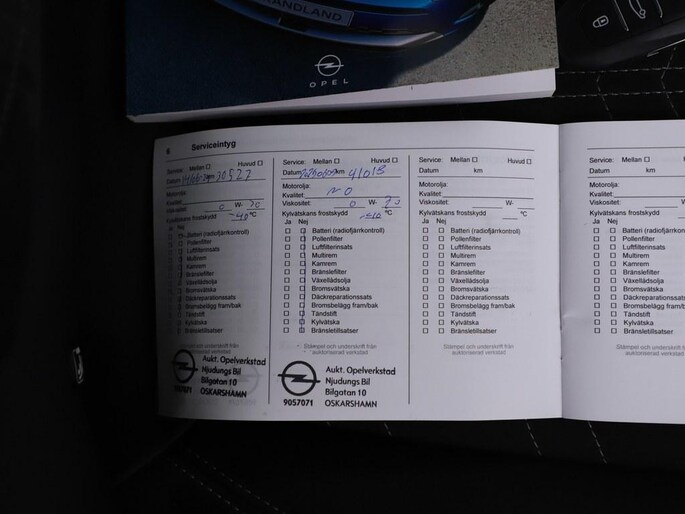 GRANDLAND
OPEL
6 Serviceintyg
Service: Mellan Huvud
Datum km 30527
Motorolja:
Kvalitet
Viskositet: 0 W- 20
Kylvätskans frostskydd -40 °C
Ja Nej
Batteri (radiofjärrkontroll)
Pollenfilter
Luftfilterinsats
Multirem
Kamrem
Bränslefilter
Växellådsolja
Bromsvätska
Däckreparationssats
Bromsbelägg fram/bak
Tändstift
Kylvätska
Bränsletillsatser
Stämpel och underskrift från
auktoriserad verkstad
Aukt. Opelverkstad
Njudungs Bil
Bilgatan 10
OSKARSHAMN
Service: Mellan Huvud
Datum km 41013
Motorolja:
Kvalitet
Viskositet: 0 W-
Kylvätskans frostskydd -40 °C
Ja Nej
Batteri (radiofjärrkontroll)
Pollenfilter
Luftfilterinsats
Multirem
Kamrem
Bränslefilter
Växellådsolja
Bromsvätska
Däckreparationssats
Bromsbelägg fram/bak
Tändstift
Kylvätska
Bränsletillsatser
Stämpel och underskrift från
auktoriserad verkstad
Aukt. Opelverkstad
Njudungs Bil
Bilgatan 10
9057071 OSKARSHAMN
Service: Mellan Huvud
Datum km
Motorolja:
Kvalitet
Viskositet: W-
Kylvätskans frostskydd °C
Ja Nej
Batteri (radiofjärrkontroll)
Pollenfilter
Luftfilterinsats
Multirem
Kamrem
Bränslefilter
Växellådsolja
Bromsvätska
Däckreparationssats
Bromsbelägg fram/bak
Tändstift
Kylvätska
Bränsletillsatser
Stämpel och underskrift från
auktoriserad verkstad
Service: Mellan
Datum
Motorolja:
Kvalitet
Viskositet:
Kylvätskans
Ja Nej